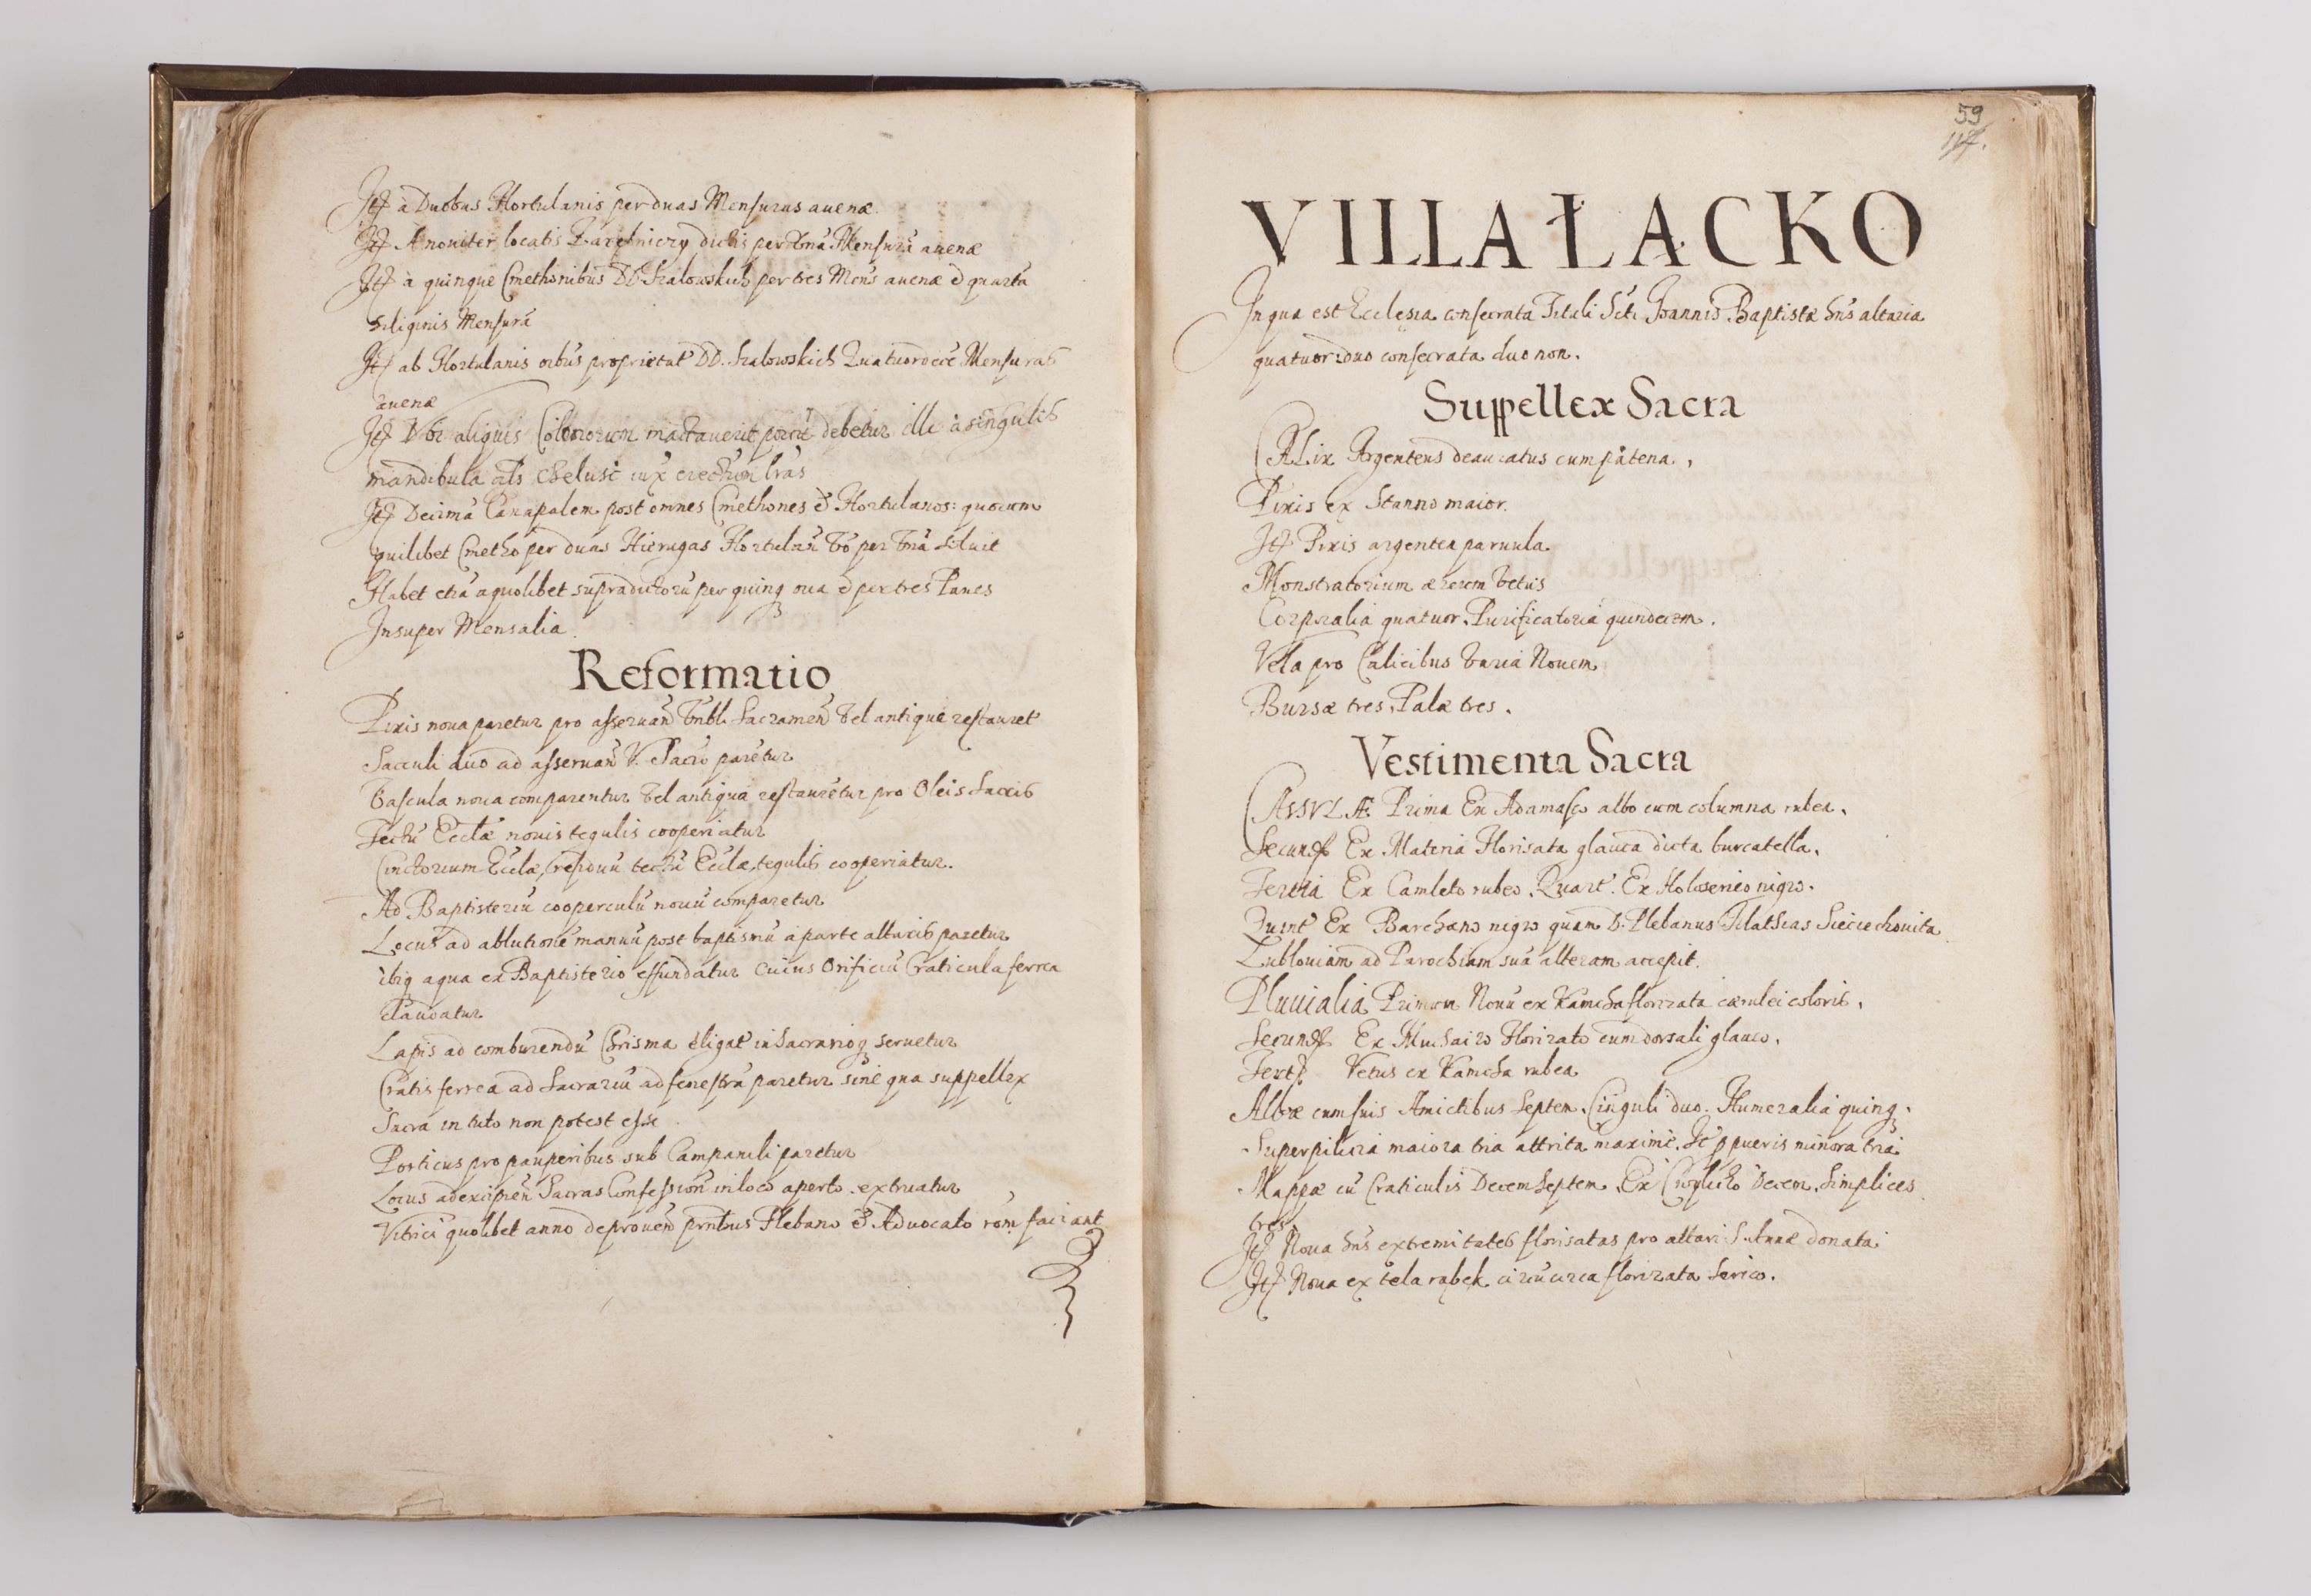 Itẽ à Duobus Hortulanis per duas Mensuras auenæ.
Itẽ A nouiter locatis dictis per vnã Mensurã auenæ
Itẽ à quinque Cmethonibus DD. Szalowskich per tres Mens auenæ & quarta
siliginis Mensurã
Itẽ ab Hortulanis oibus DD. Szalowskich Quatuordecĩ Mensuras
auenæ
Itẽ Vbi aliquis mactauerit debetur illi à singulis
mandibula als Czelusc iux erection lras
Itẽ Decimã Canapalem post omnes Cmethones & Hortulanos: quorum
quilibet Cmetho per duas Hortulan̄ vō per vnã soluit
Habet etiã a quolibet supradictorũ per quinq oua & per tres Panes
Insuper Mensalia.
Reformatio
Pixis noua paretur pro asseruan̄ Vnbli Sacramen̄ vel antiqua restauret
Sacculi duo ad asseruan̄ V. Sacrũ parētur
Vascula noua comparentur vel antiqua restaurētur pro Oleis Sacris
Tectũ Ecclæ nouis tegulis cooperiatur
Cinctorium Ecclæ, & residuũ tectũ Ecclæ, tegulis cooperiatur.
Ad Baptisteriũ cooperculũ nouũ comparetur
Locus ad ablutionē manuũ post baptismũ à parte altaris paretur
ibiq aqua ex Baptisterio effundatur cuius Orificiũ Craticula ferrea
claudatur
Lapis ad comburendũ Chrisma eligat in Sacrarioq seruetur
Cratis ferrea ad Sacrariũ ad fenestrã paretur sine qua suppellex
Sacra in tuto non potest esse.
Porticus pro pauperibus sub Campanili paretur
Locus ad excipien̄ Sacras Confession̄ in loco aperto extruatur
Vitrici quolibet anno de prouen̄ pn̄tibus Plebano & Aduocato rōm faciant
59
114.
VILLA ŁACKO
In qua est Ecclesia consecrata Tituli Scti Joannis Baptistæ hn̄s altaria
quatuor: duo consecrata duo non.
Suppellex Sacra
CALix Argenteus deauratus cum patena.
Pixis ex Stanno maior.
Itẽ Pixis argentea paruula.
Monstratorium æreum vetus
Corporalia quatuor. Purificatoria quindecim.
Vela pro Calicibus varia Nouem
Bursæ tres. Palæ tres.
Vestimenta Sacra
CASVLÆ Prima Ex Adamasco albo cum columna rubea.
Secundẽ Ex Materia Florisata glauca dicta burcatella.
Tertia Ex Camleto rubeo. Quart. Ex Holoserico nigro.
Quint Ex Barchano nigro quam D. Plebanus Mathias Sieciechouita
Lubloviam ad Parochiam suã alteram accepit.
Pluuialia Primum Nouũ ex Kamcha florizata cærulei coloris.
Secundẽ Ex Muchairo Florizato cum dorsali glauco.
Tertẽ Vetus ex Kamcha rubea
Albæ cum suis Amictibus Septem. Cinguli duo. Humeralia quinq.
Superpilicia maiora tria attrita maxime. Itẽ p pueris minora tria.
Mappæ cũ Craticulis Decem Septem. Ex Cwylicho Decem. Simplices
tres.
Itẽ Noua hn̄s extremitates florisatas pro altari S. Annæ donata.
Itẽ Noua ex tela rabek circũ circa florizata serico.